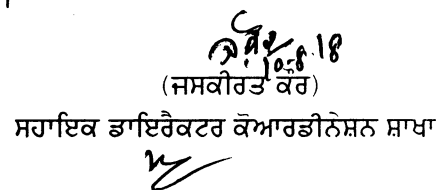 10.8.18
(ਜਸਕੀਰਤ ਕੌਰ)
ਸਹਾਇਕ ਡਾਇਰੈਕਟਰ ਕੋਆਰਡੀਨੇਸ਼ਨ ਸ਼ਾਖਾ